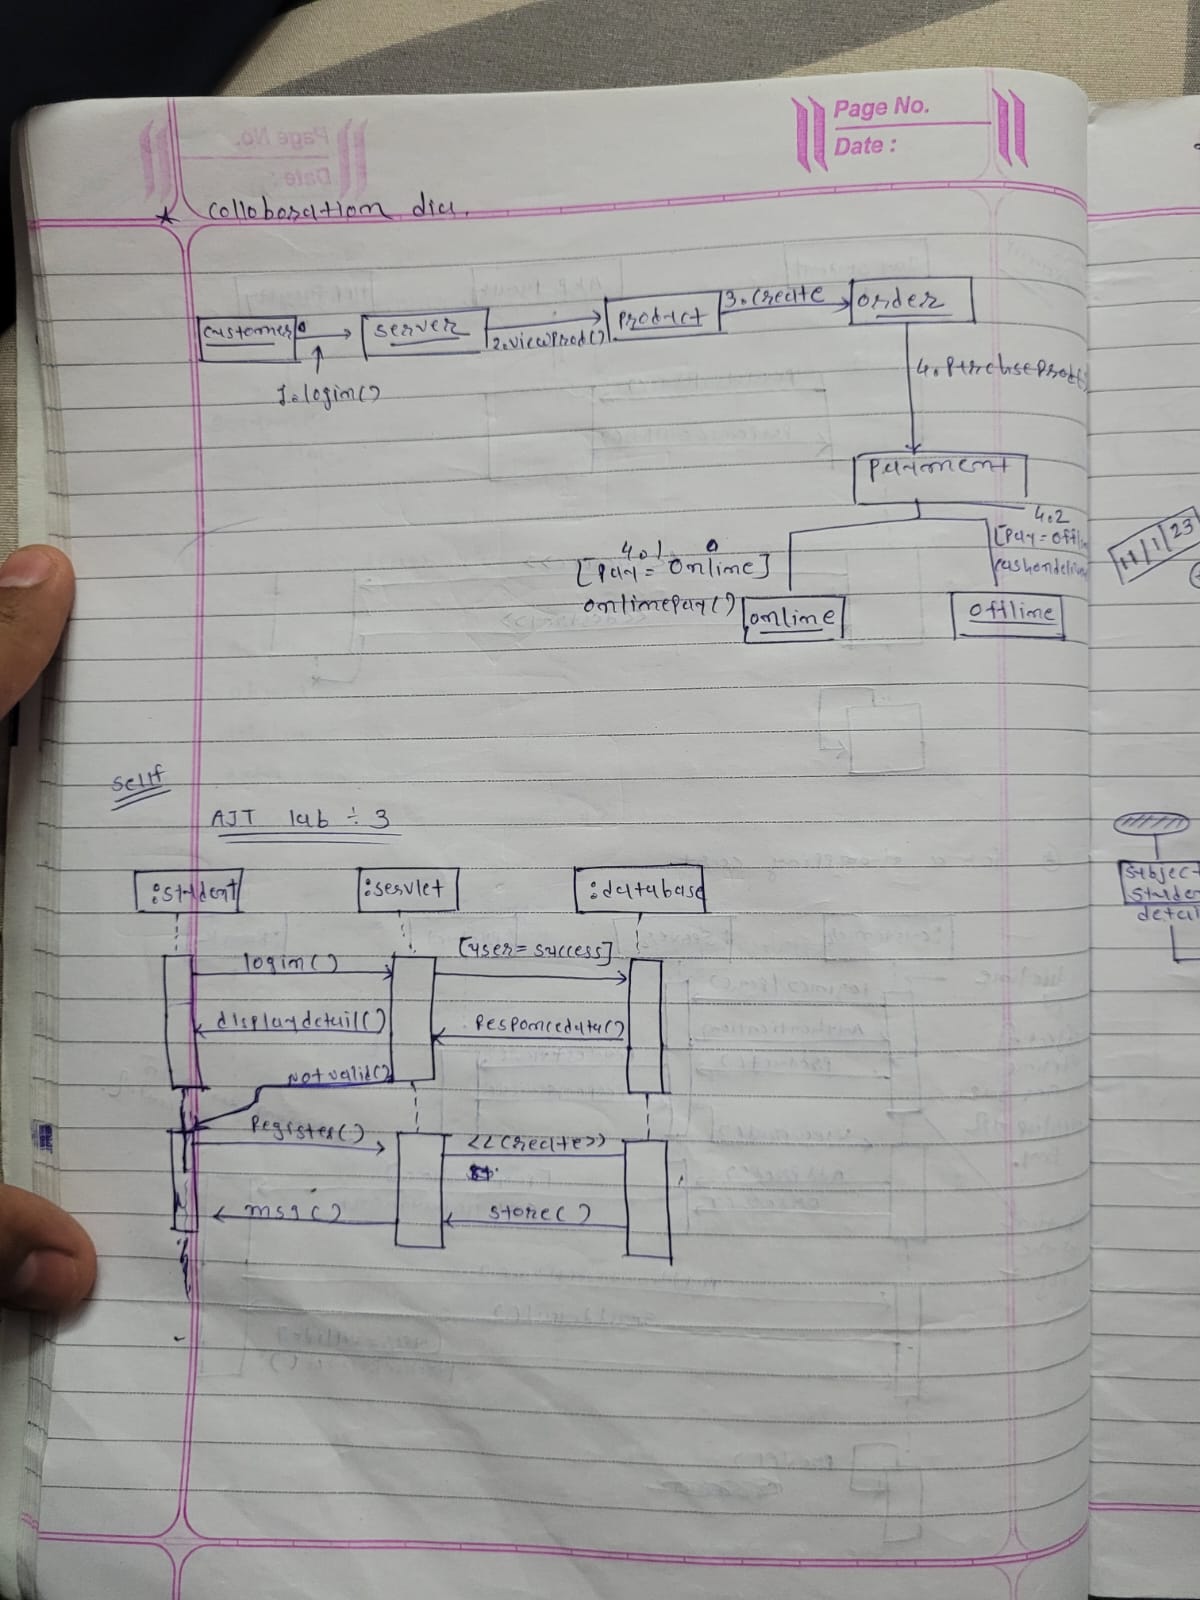 Page No.
Date :
★ colloboration dia.
customer
server
product
3. create
order
2. viewProd()
1. login()
payment
4.1
[pay = online]
onlinepay()
4.2
[pay = offli
online
offline
11/1/23
self
AJT lab ÷ 3
:student
:servlet
:database
login()
[user = success]
displaydetail()
Responcedata()
Notvalid()
Register()
<<create>>
msg()
store()
subject
studen
detail